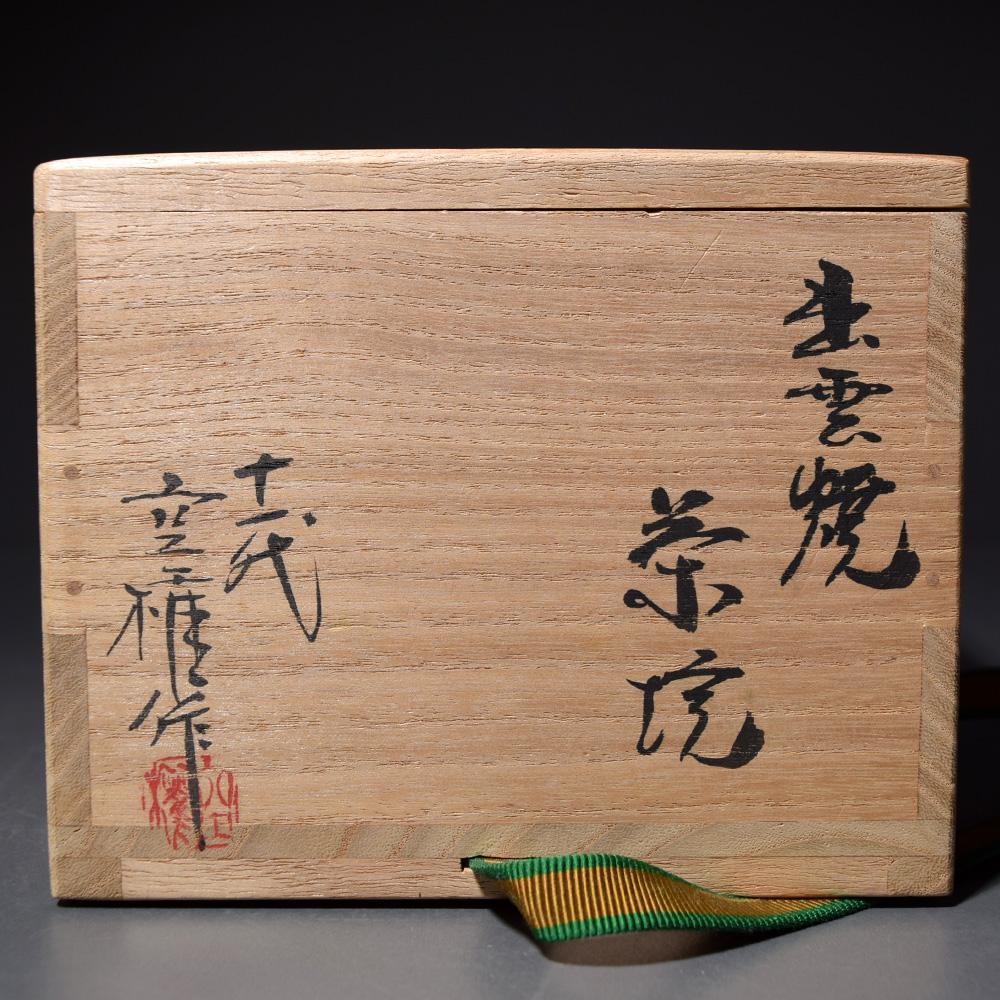 出雲焼
茶垸
十一代
空権作